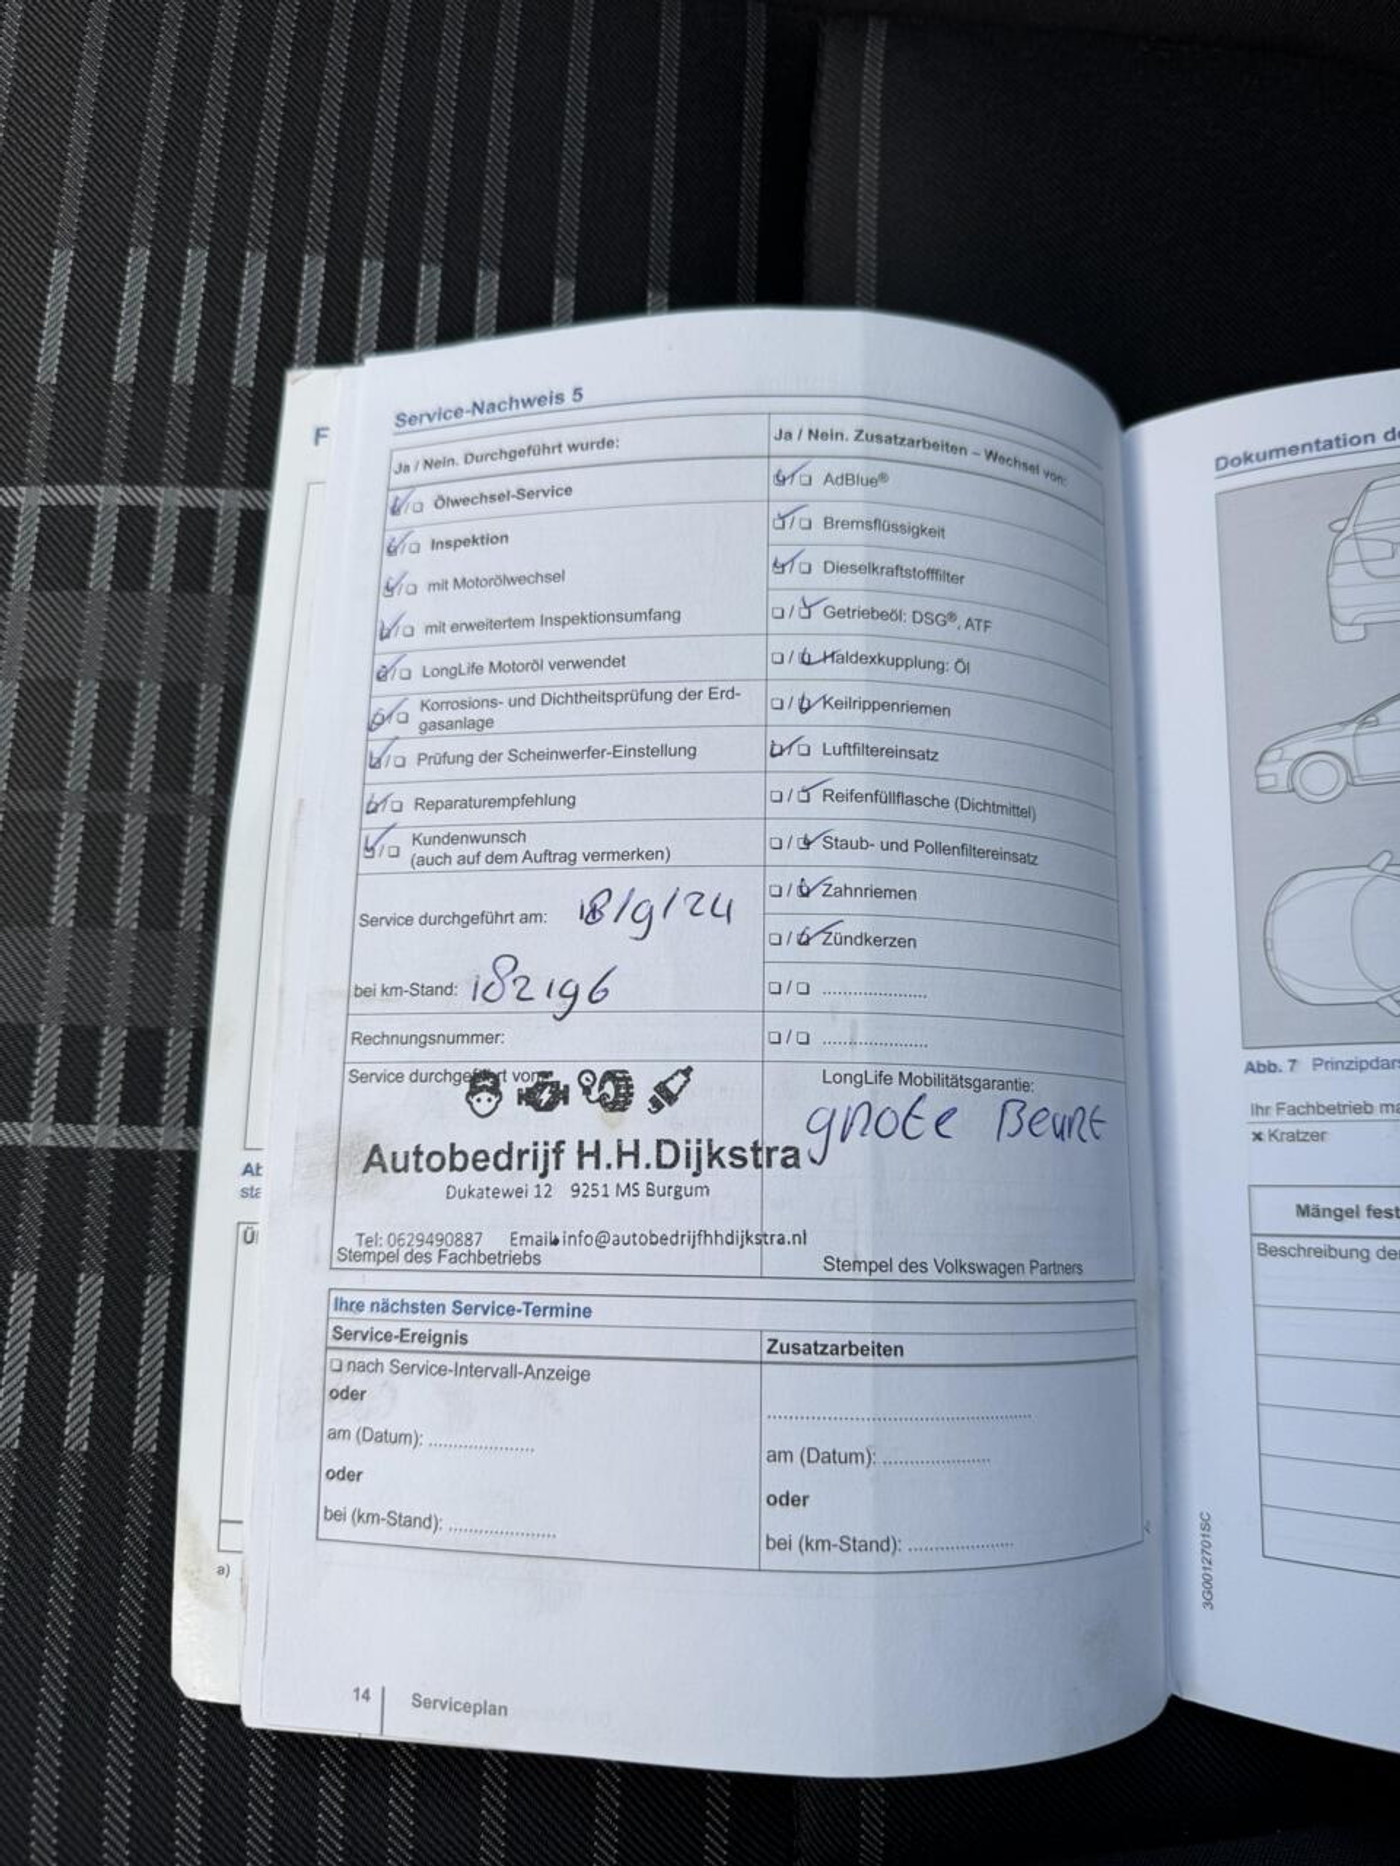 Service-Nachweis 5
Ja / Nein. Durchgeführt wurde:
Ölwechsel-Service
Inspektion
mit Motorölwechsel
mit erweitertem Inspektionsumfang
LongLife Motoröl verwendet
Korrosions- und Dichtheitsprüfung der Erd-
gasanlage
Prüfung der Scheinwerfer-Einstellung
Reparaturempfehlung
Kundenwunsch
(auch auf dem Auftrag vermerken)
Service durchgeführt am: 18/9/24
bei km-Stand: 182196
Rechnungsnummer:
Service durchgeführt von:
Autobedrijf H.H.Dijkstra
Dukatewei 12 9251 MS Burgum
Tel: 0629490887 Email: info@autobedrijfhhdijkstra.nl
Stempel des Fachbetriebs
Ja / Nein. Zusatzarbeiten – Wechsel von:
AdBlue®
Bremsflüssigkeit
Dieselkraftstofffilter
Getriebeöl: DSG®, ATF
Haldexkupplung: Öl
Keilrippenriemen
Luftfiltereinsatz
Reifenfüllflasche (Dichtmittel)
Staub- und Pollenfiltereinsatz
Zahnriemen
Zündkerzen
LongLife Mobilitätsgarantie:
grote Beurt
Stempel des Volkswagen Partners
Ihre nächsten Service-Termine
Service-Ereignis
nach Service-Intervall-Anzeige
oder
am (Datum): ....................
oder
bei (km-Stand): ....................
Zusatzarbeiten
..................................................
am (Datum): ....................
oder
bei (km-Stand): ....................
14 Serviceplan
F
Ab
sta
a)
Dokumentation de
Abb. 7 Prinzipdar
Ihr Fachbetrieb ma
× Kratzer
Mängel fest
Beschreibung de
3G0012701SC